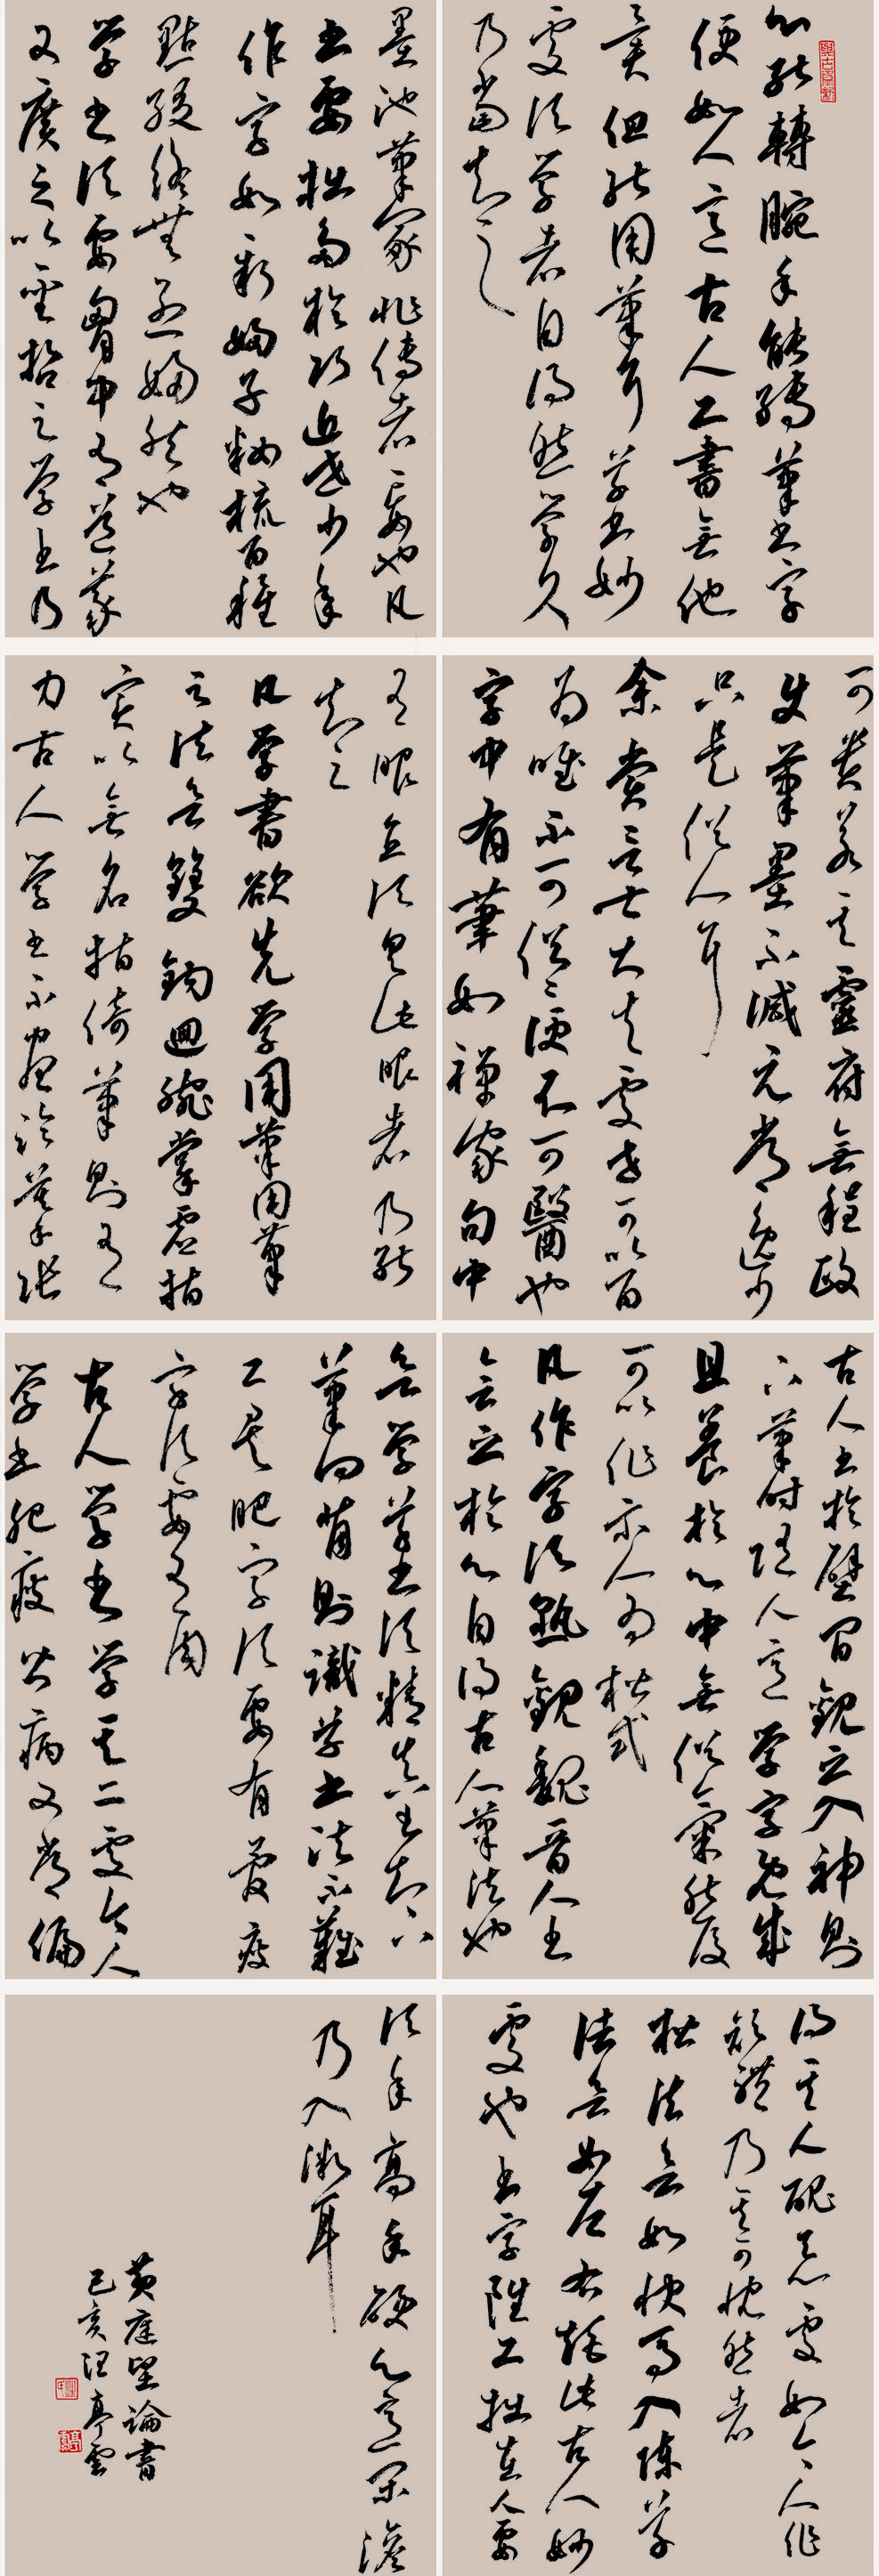 心能轉腕手能轉筆書字
便如人意古人工書無他
異但能用筆耳學草書妙
處須學者自得然學久
乃當知之
墨池筆冢非傳者妄也凡
書要拙多於巧近世少年
作字如新婦子粧梳百種
點綴終無烈婦態也
學書須要胸中有道義
又廣之以聖哲之學書乃
可貴若其靈府無程政
使筆墨不減元常逸少
只是俗人耳
余嘗言士大夫處世可以百
為唯不可俗俗便不可醫也
字中有筆如禪家句中
有眼直須具此眼者乃能
知之
凡學書欲先學用筆用筆
之法欲雙鉤回腕掌虛指
實以無名指倚筆則有
力古人學書不盡臨摹張
古人書於壁間觀之入神則
下筆時隨人意學字既成
且養於心中無俗氣然後
可以作示人為楷式
凡作字須熟觀魏晉人書
會之於心自得古人筆法也
欲學草書須精真書知下
筆向背則識草書法不難
工矣肥字須要有骨瘦
字須要有肉
古人學書學其二處今人
學書肥瘦皆病又常偏
得其人醜惡處如今人作
顏體乃其可慨然者
楷法欲如快馬入陳草
法欲如左右龍此古人妙
處也書字雖工拙在人要
須年高手硬心意閑澹
乃入微耳
黃庭堅論書
己亥汪亭雲